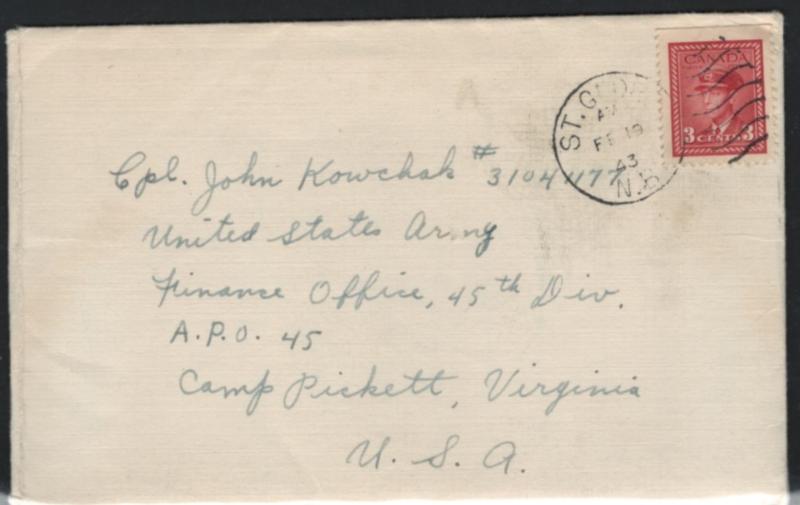 CANADA
3 CENTS 3
ST. GEO
AM
FE 19
43
N.B
Cpl. John Kowchak # 31041177
United States Army
Finance Office, 45th Div.
A.P.O. 45
Camp Pickett, Virginia
U. S. A.